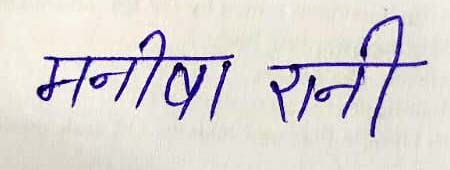 मनीषा रानी